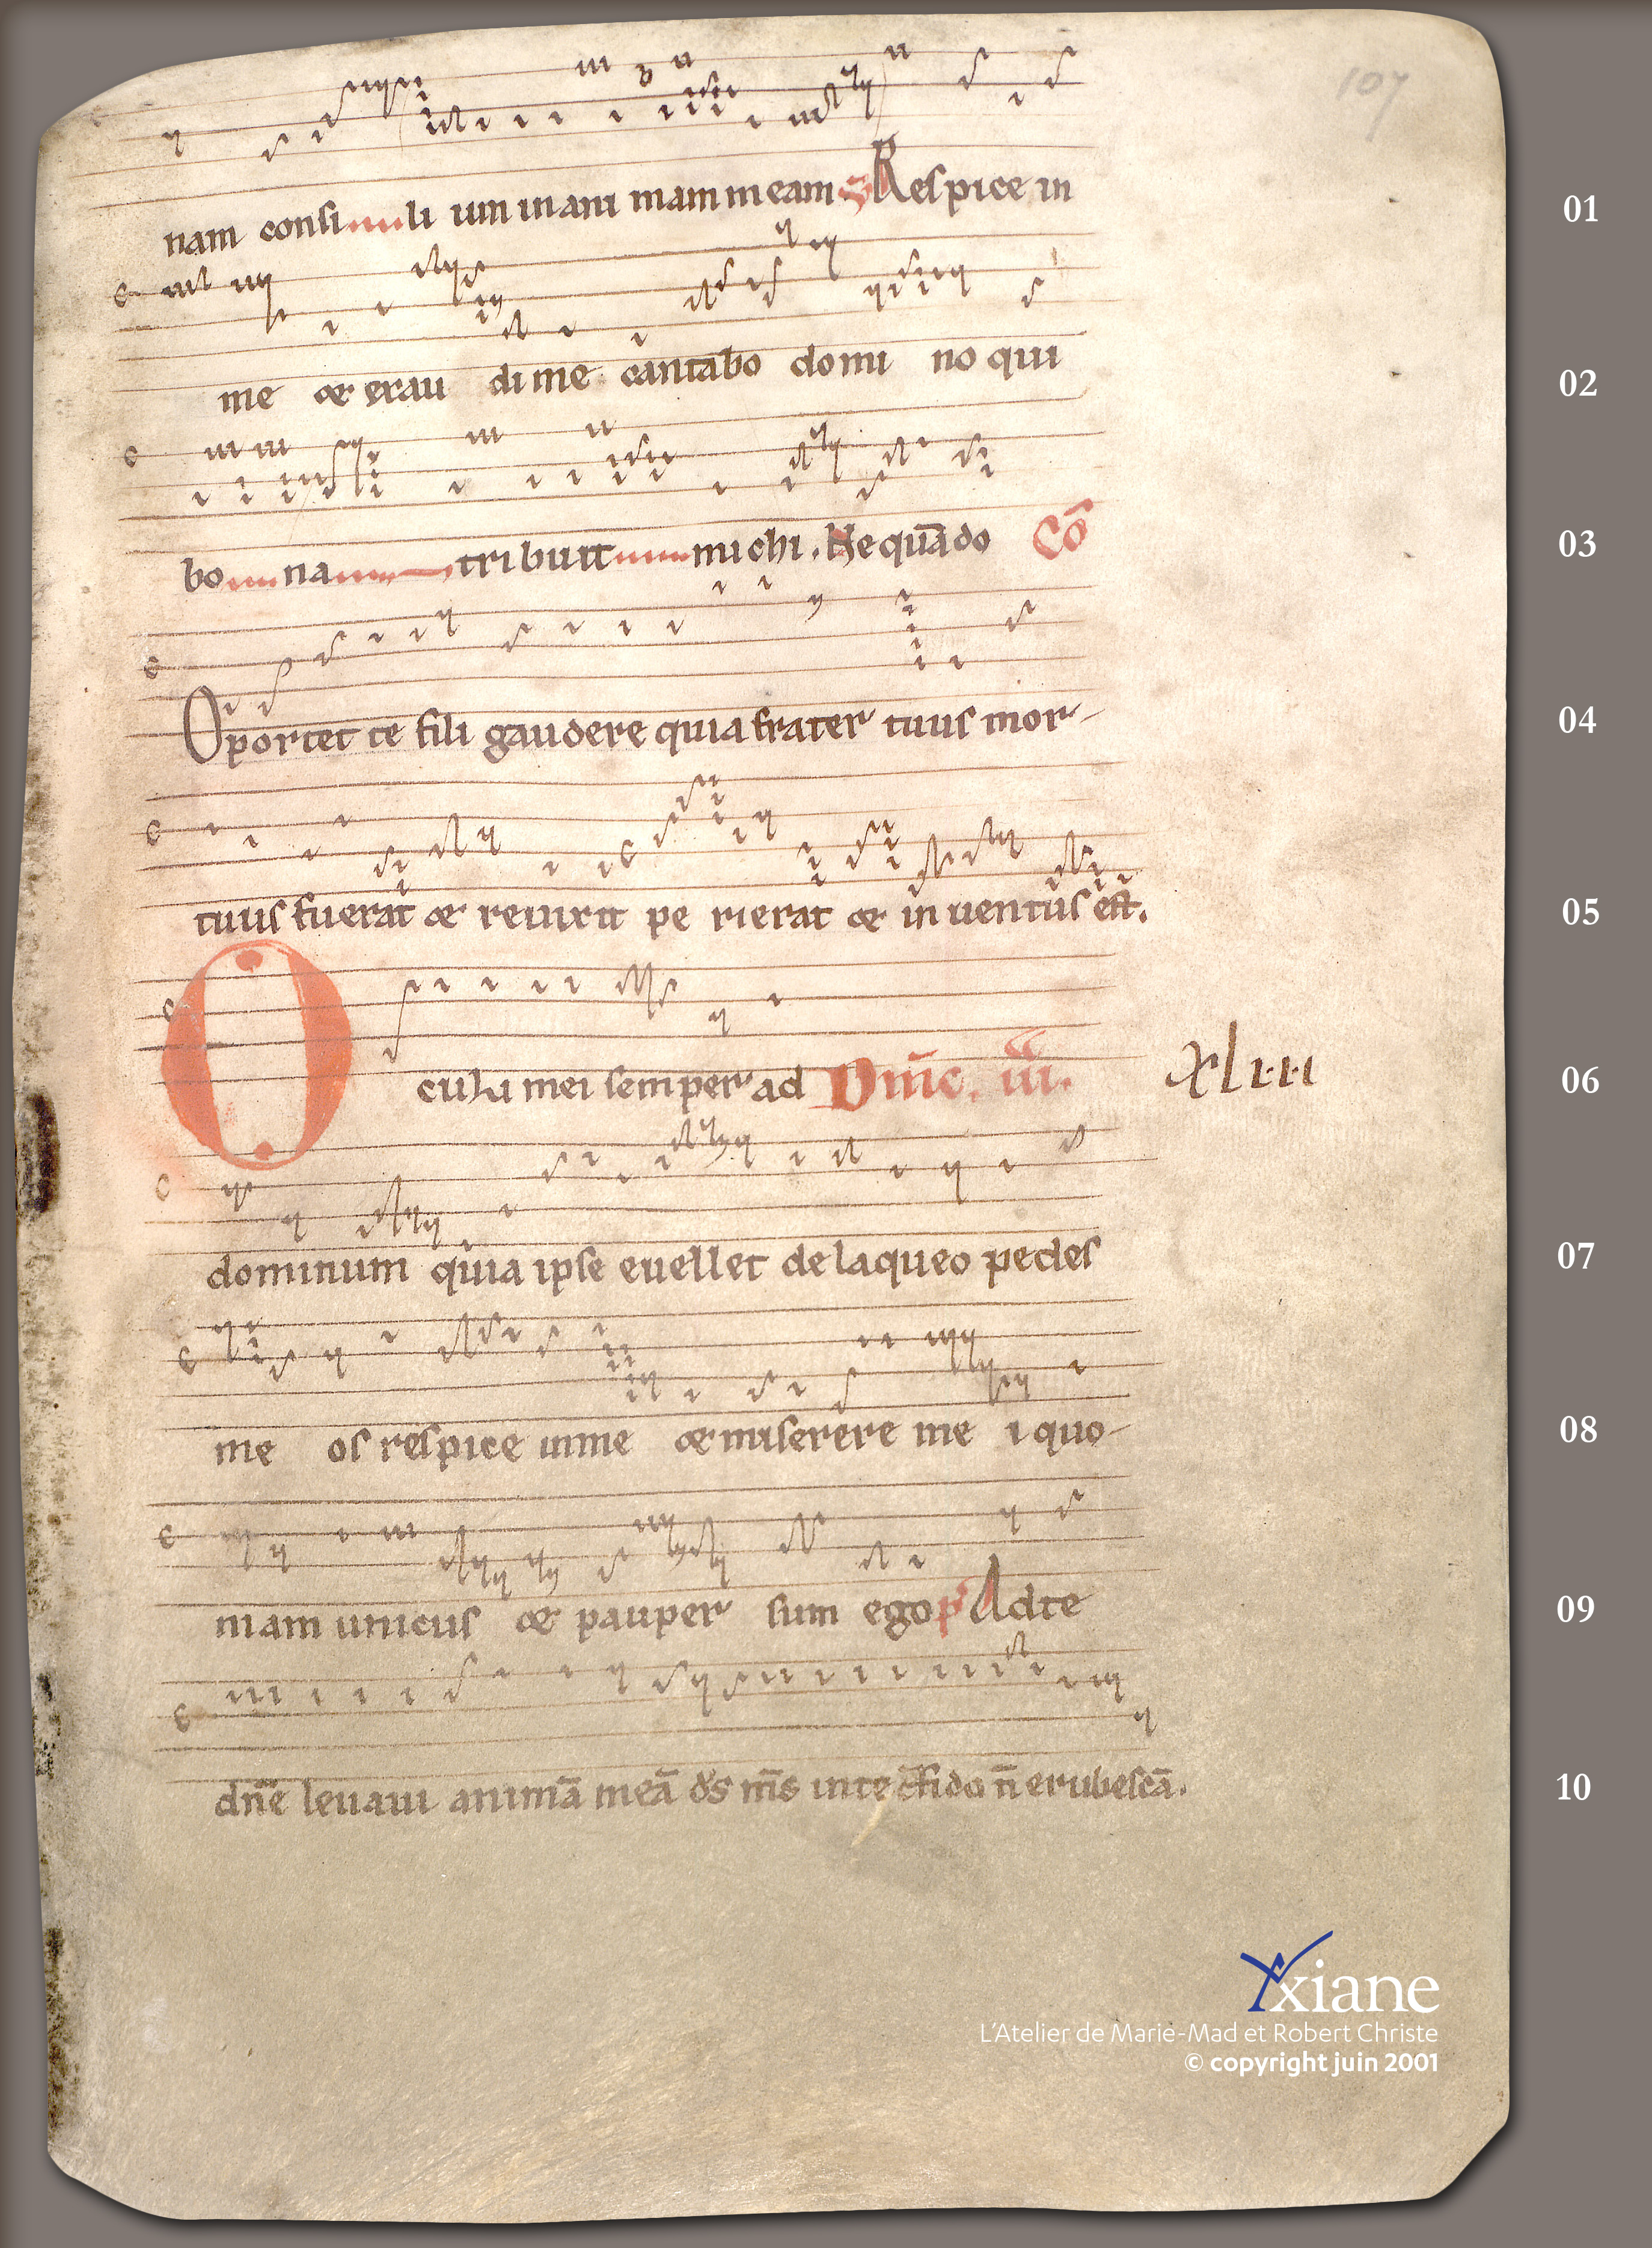 107
nam consi li um in ani mam meam Respice in 01
me & exau di me cantabo domi no qui 02
bo na tribuit michi. Ne quādo Cō 03
Oportet te fili gaudere quia frater tuus mor- 04
tuus fuerat & reuixit pe rierat & in uentus est. 05
Oculi mei semper ad Dn̄ic. iii. xliii 06
dominum quia ipse euellet de laqueo pedes 07
me os respice inme & miserere me i quo- 08
niam unicus & pauper sum ego p̄ Adte 09
dn̄e leuaui animā meā dš m̄s inte cf̄ido n̄ erubescā. 10
xiane
L'Atelier de Marie-Mad et Robert Christe
© copyright juin 2001